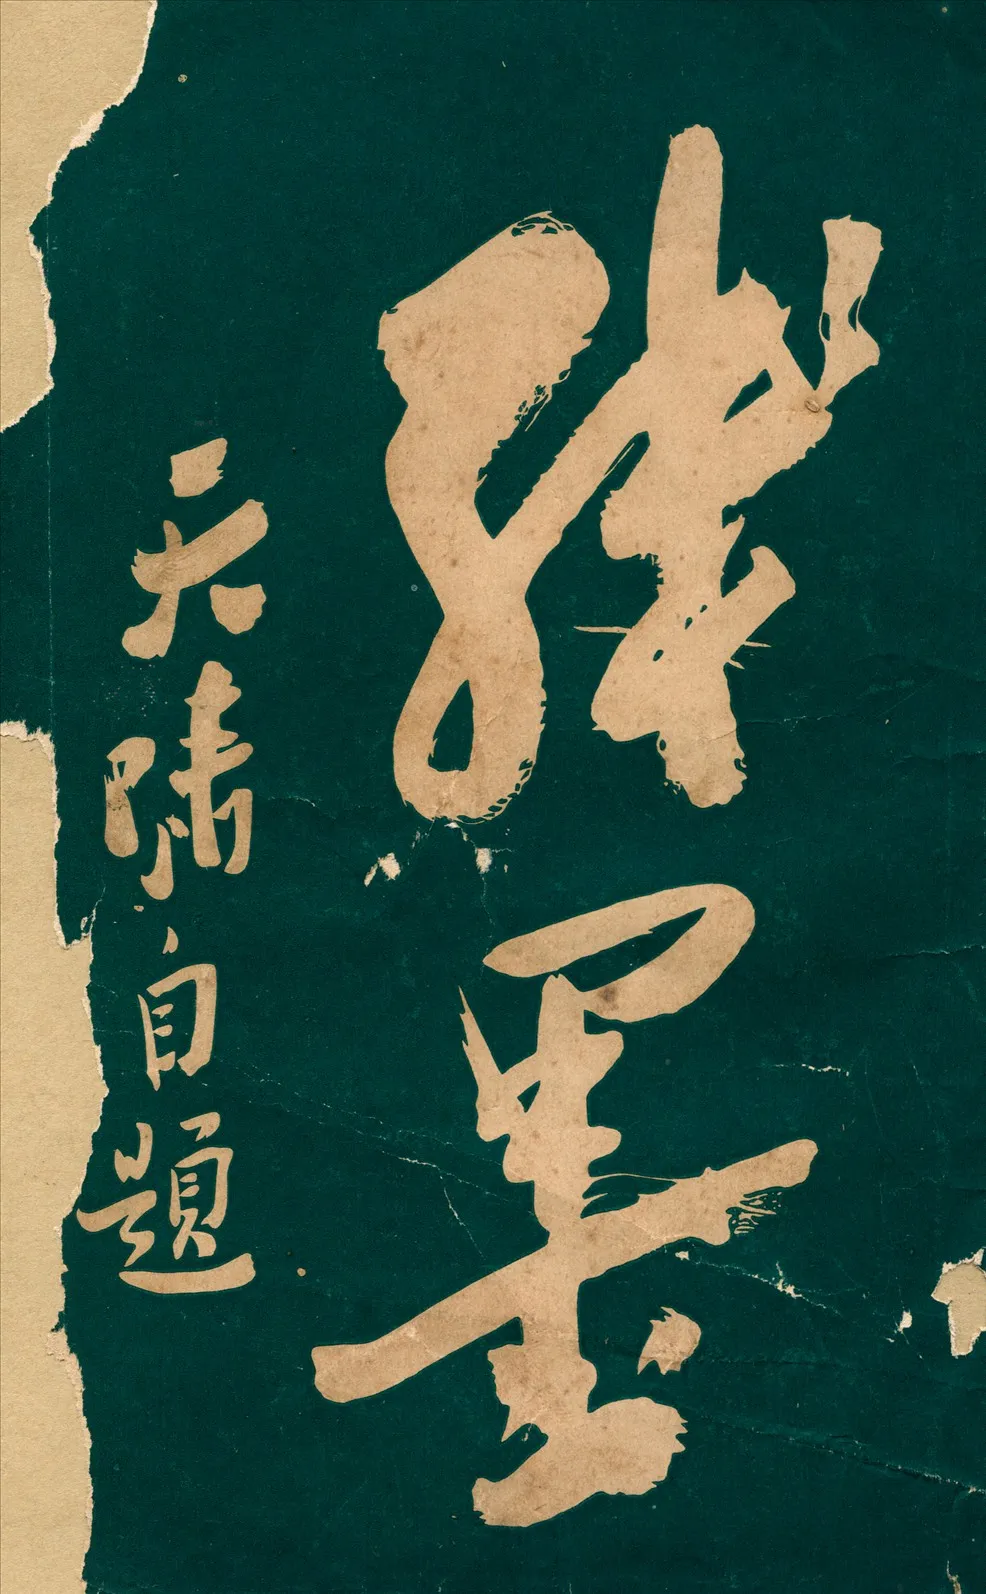 殘墨
天嘯自題